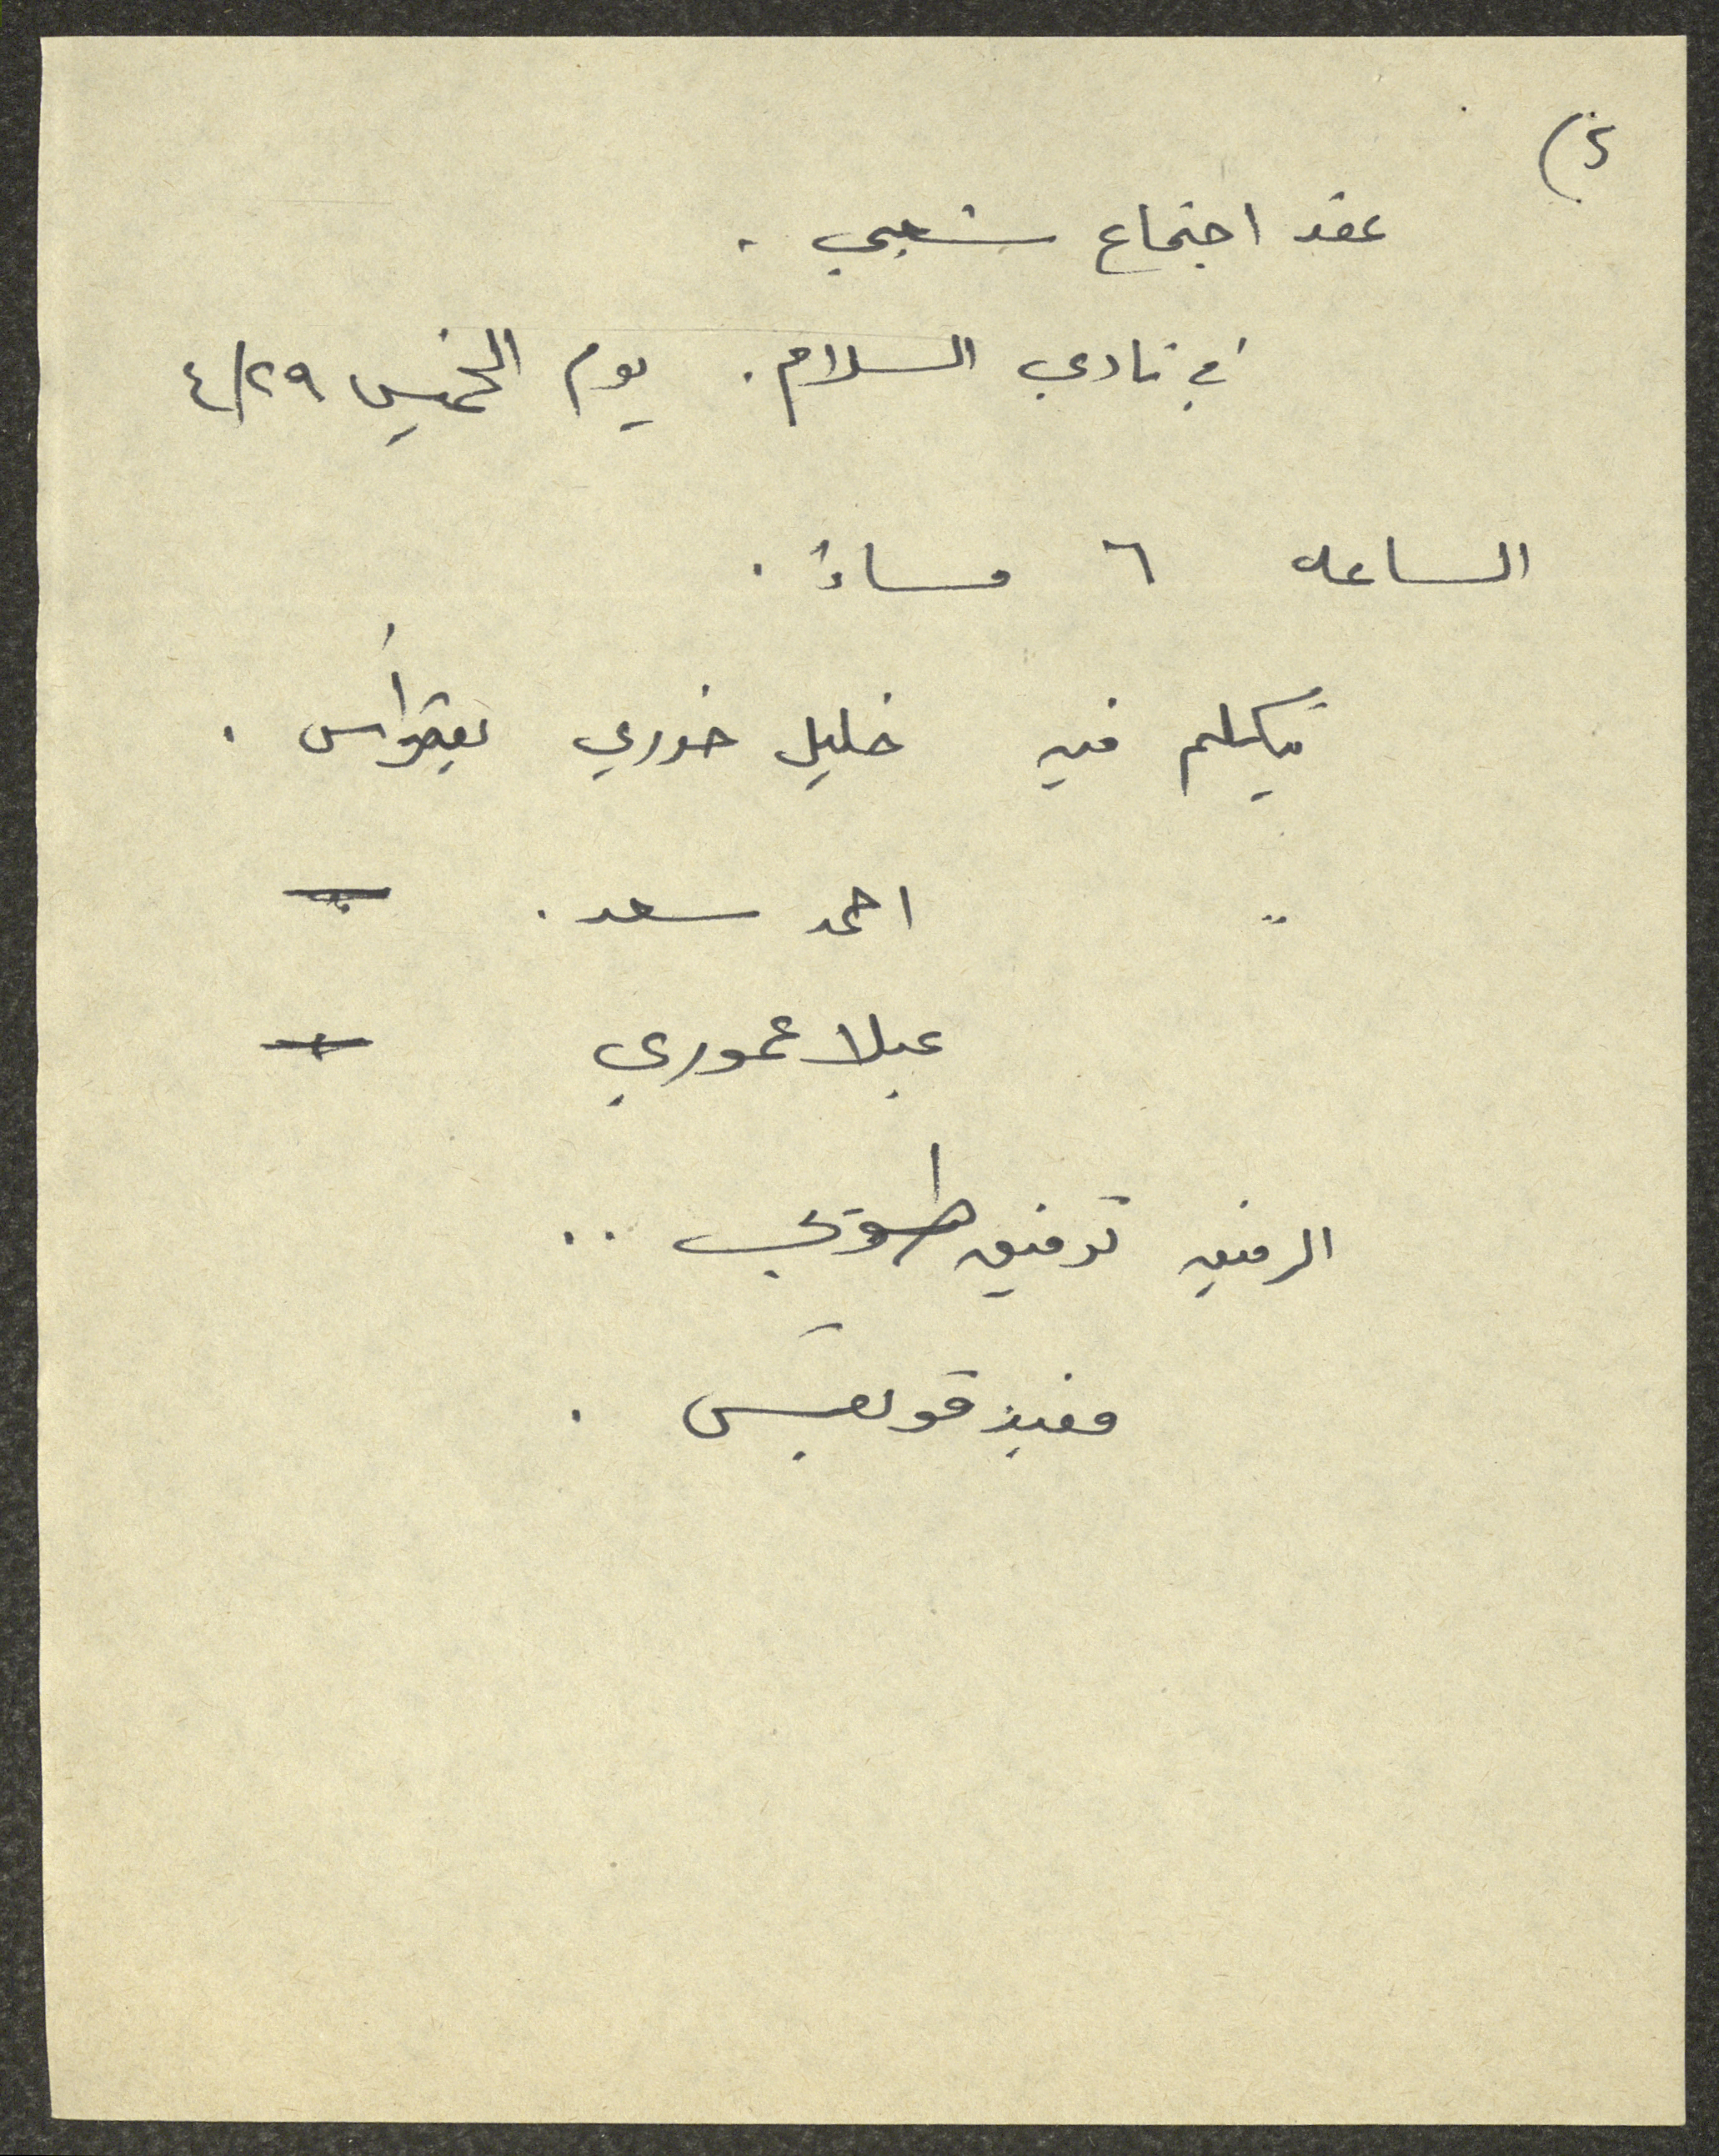 ٢)
عقد اجتماع شعبي .
في نادي السلام . يوم الخميس ٤/٢٩
الساعه ٦ مساءً .
يتكلم فيه خليل خوري
" احمد سعد .
عبلا عموري
الرفيق توفيق طوبي ..
مفيد قويقس .